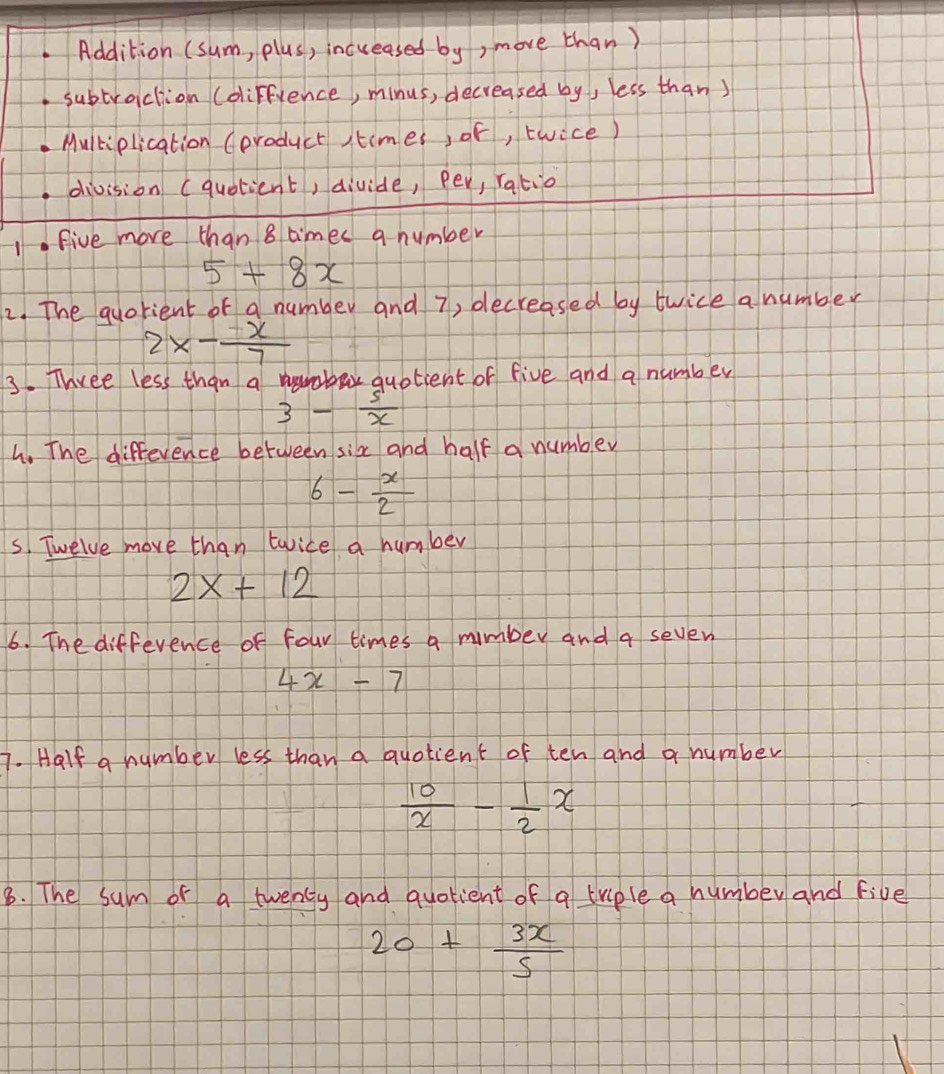 • Addition (sum, plus, increased by, more than)
• subtraction (diffrence, minus, decreased by, less than)
• Multiplication (product, times, of, twice)
• division (quotient, divide, per, ratio
1 • five more than 8 times a number
5 + 8x
2. The quotient of a number and 7, decreased by twice a number
2x - x/7
3. Three less than a quotient of five and a number
3 - 5/x
4. The difference between six and half a number
6 - x/2
5. Twelve more than twice a number
2x + 12
6. The difference of four times a number and a seven
4x - 7
7. Half a number less than a quotient of ten and a number
10/x - 1/2 x
8. The sum of a twenty and quotient of a triple a number and five
20 + 3x/5